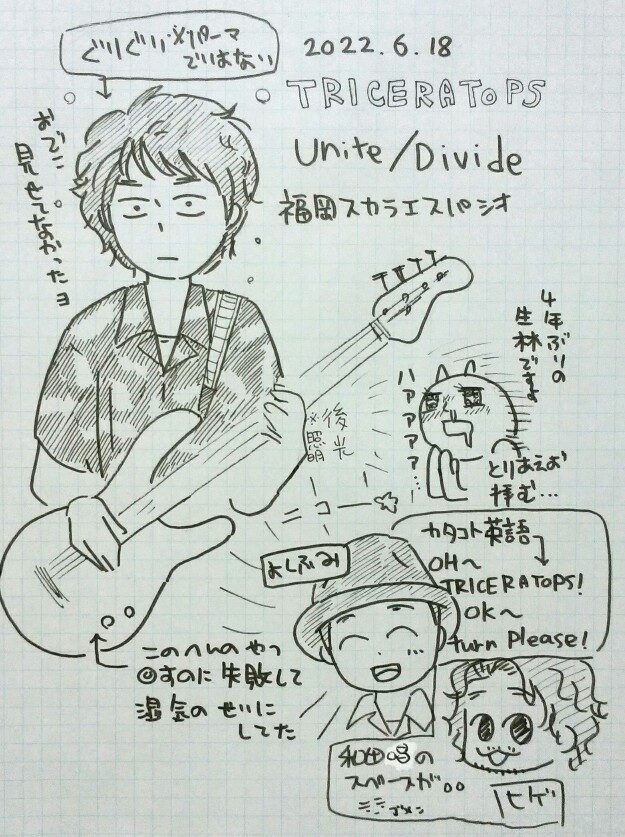 ぐりぐり※パーマ
ではない
2022.6.18
TRICERATOPS
Unite/Divide
福岡スカラエスパシオ
おでこ
見せてなかったヨ
4年ぶりの
生林ですよ
ハァアアアア…
とりあえず
拝む…
後光
※照明
ニコ
よしふみ
カタコト英語
OH~
TRICERATOPS!
OK~
turn Please!
このへんのやつ
◎すのに失敗して
湿気のせいに
してた
和田唱の
スペースが。。
ゴメン
ヒゲ